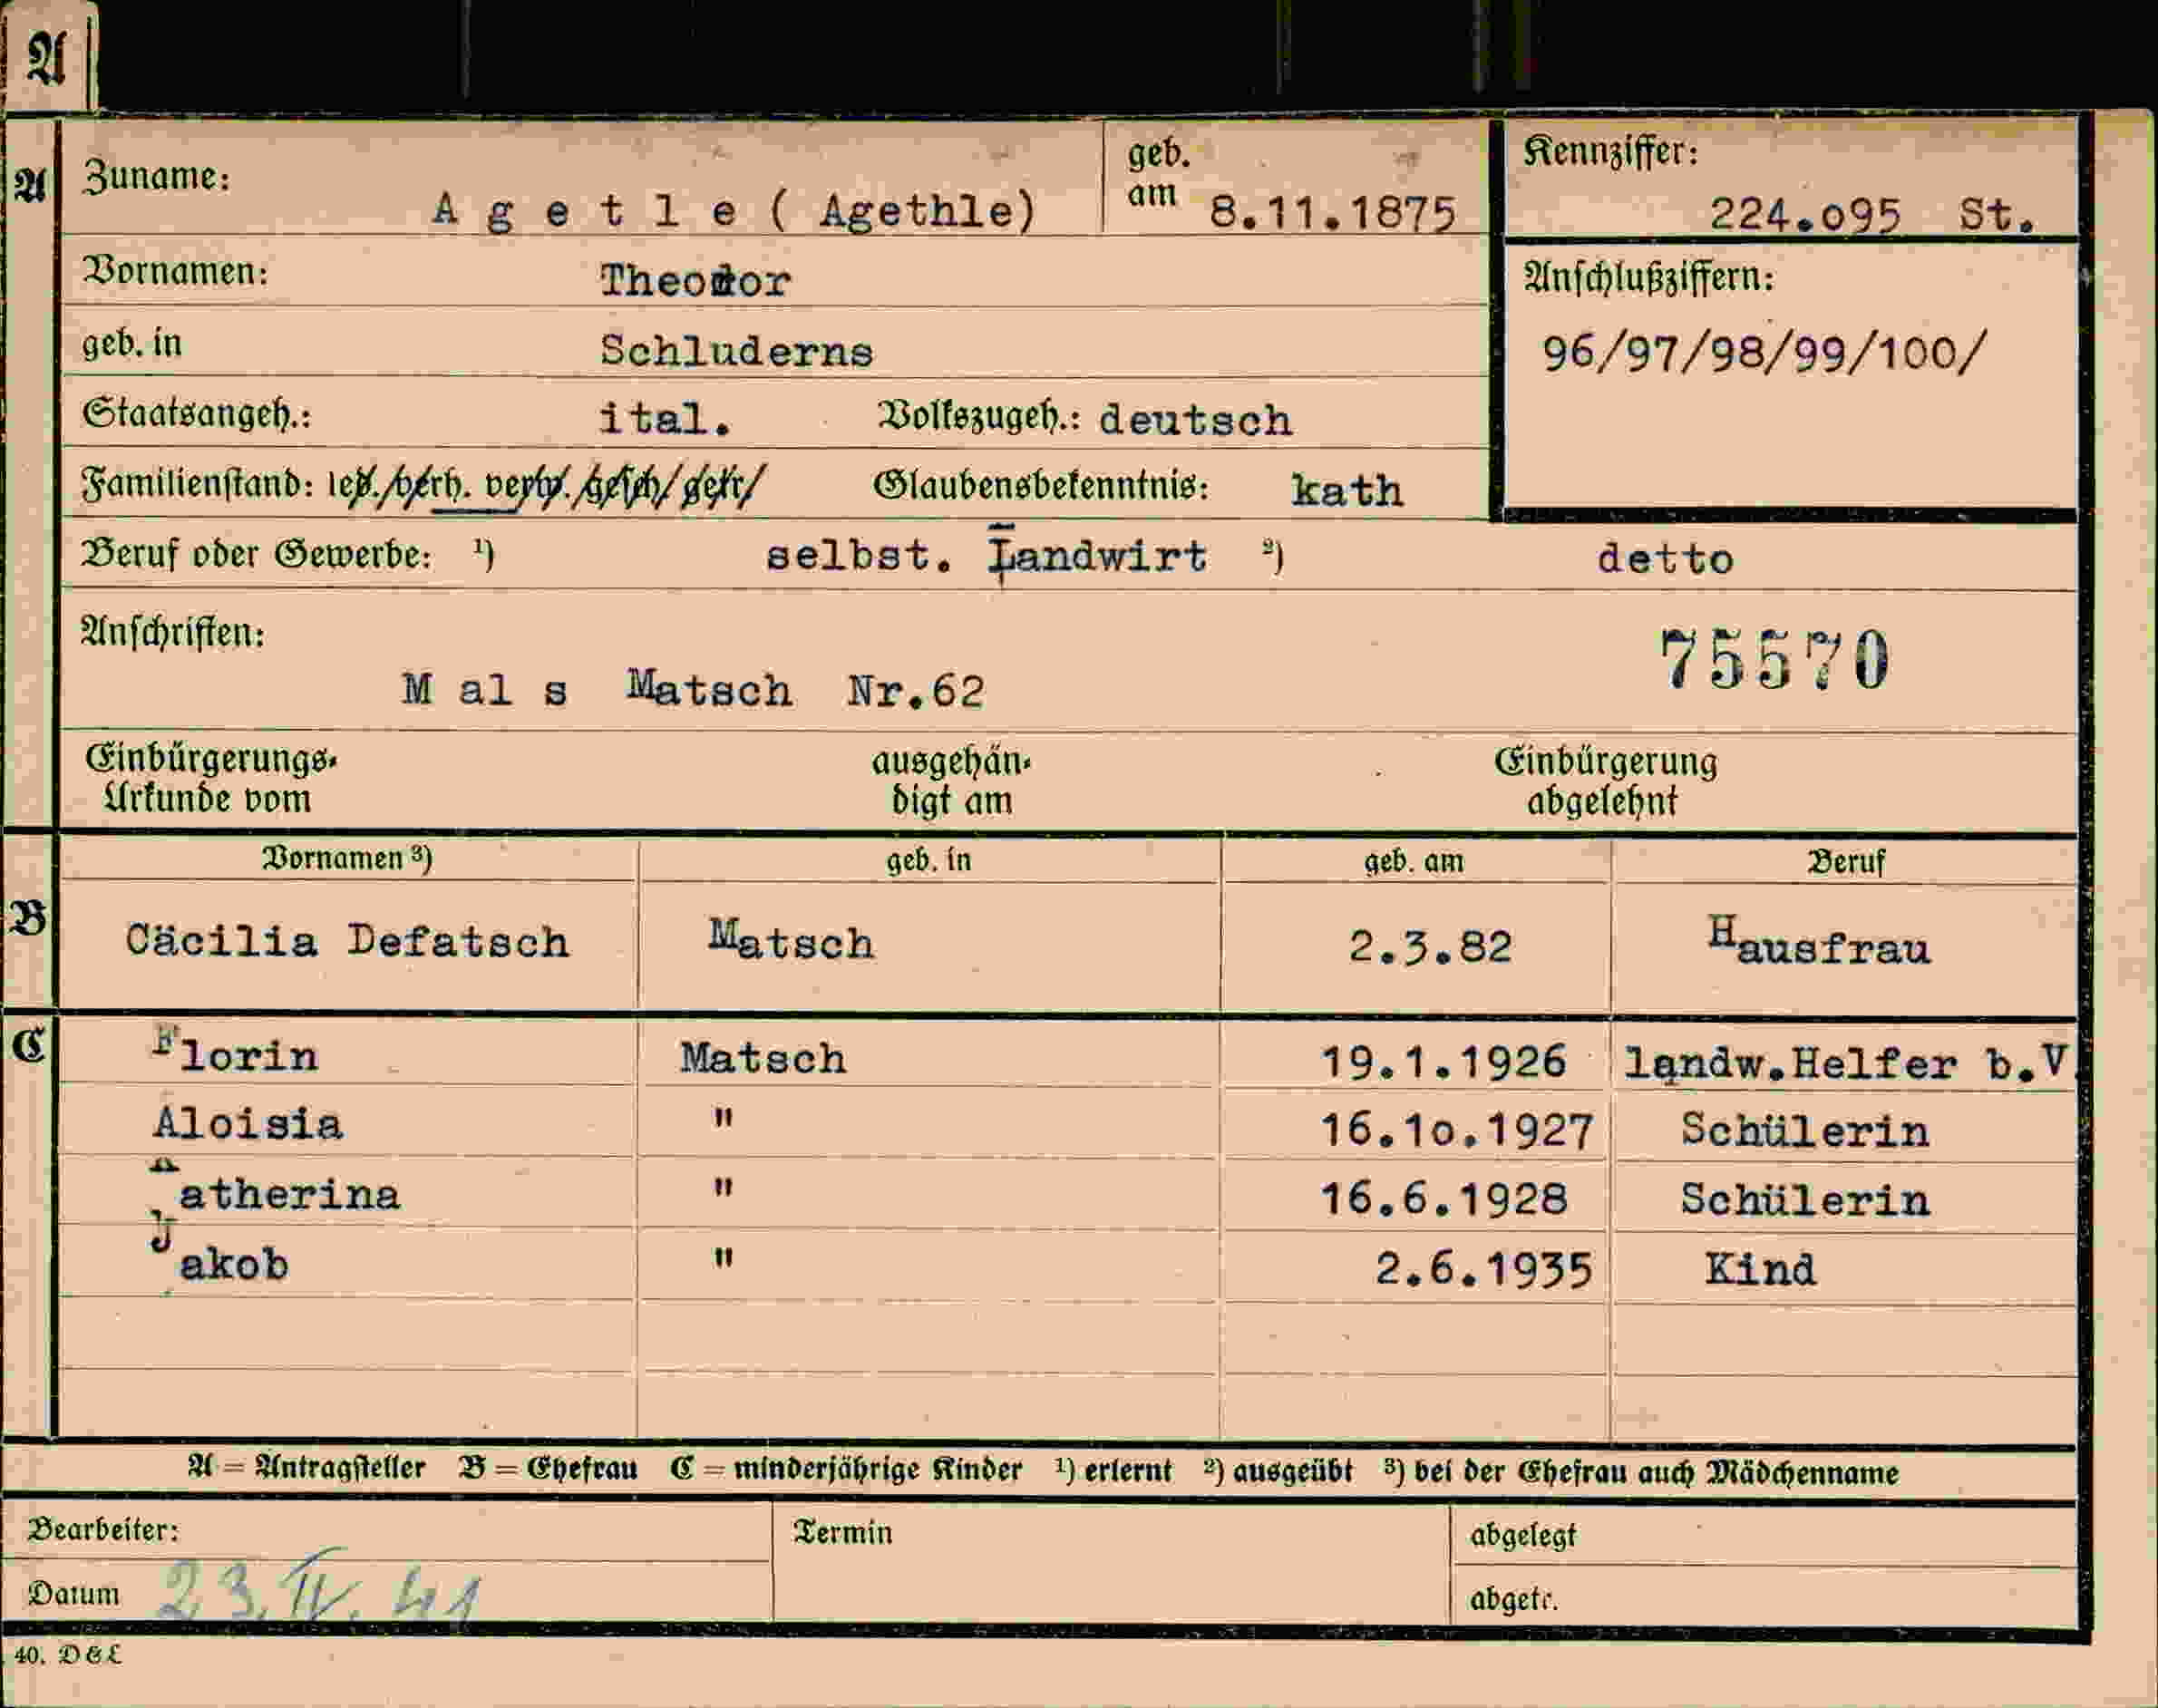 A
A
Zuname: A g e t l e ( Agethle) geb. am 8.11.1875 Kennziffer: 224.o95 St.
Vornamen: Theodor Anschlußziffern:
geb. in Schluderns 96/97/98/99/100/
Staatsangeh.: ital. Volkszugeh.: deutsch
Familienstand: led./verh. verw./gesch/getr/ Glaubensbekenntnis: kath
Beruf oder Gewerbe: ¹) selbst. Landwirt ²) detto
Anschriften: 75570
M al s Matsch Nr.62
Einbürgerungs- ausgehän- Einbürgerung
Urkunde vom digt am abgelehnt
Vornamen ³) geb. in geb. am Beruf
B Cäcilia Defatsch Matsch 2.3.82 Hausfrau
C Florin Matsch 19.1.1926 landw.Helfer b.V.
Aloisia " 16.1o.1927 Schülerin
Katherina " 16.6.1928 Schülerin
Jakob " 2.6.1935 Kind
A = Antragsteller B = Ehefrau C = minderjährige Kinder ¹) erlernt ²) ausgeübt ³) bei der Ehefrau auch Mädchenname
Bearbeiter: Termin abgelegt
Datum 23.IV.41 abgetr.
40. D & L